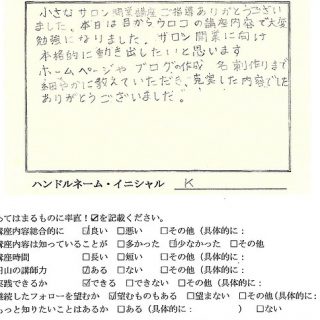 小さなサロン開業講座ご指導ありがとうござい
ました。本日は目からウロコの講座内容で大変
勉強になりました。サロン開業に向け
本格的に動き出したいと思います
ホームページやブログの作成 名刺作りまで
細やかに教えていただき、充実した内容でした
ありがとうございました。
ハンドルネーム・イニシャル K
ってはまるものに半直!☑を記載ください。
講座内容総合的に ☑良い □悪い □その他(具体的に:
講座内容は知っていることが □多かった ☑少なかった □その他
講座時間 □長い □短い □その他(具体的に:
円山の講師力 ☑ある □ない □その他(具体的に:
実践できるか ☑できる □できない □その他(具体的に:
継続したフォローを望むか ☑望むものもある □望まない □その他(具体的に:
もっと知りたいことはあるか □ある(具体的に: ) □ない